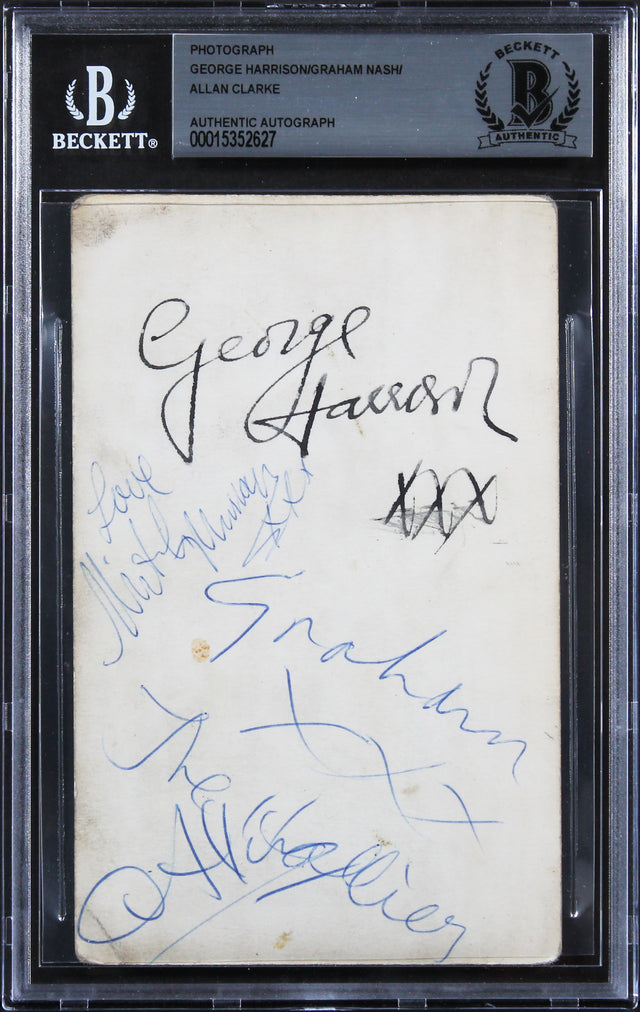 B
BECKETT®
PHOTOGRAPH
GEORGE HARRISON/GRAHAM NASH/
ALLAN CLARKE
AUTHENTIC AUTOGRAPH
00015352627
BECKETT
B
AUTHENTIC
George
Harrison
XXX
Love
xxx
Graham
XXX
The